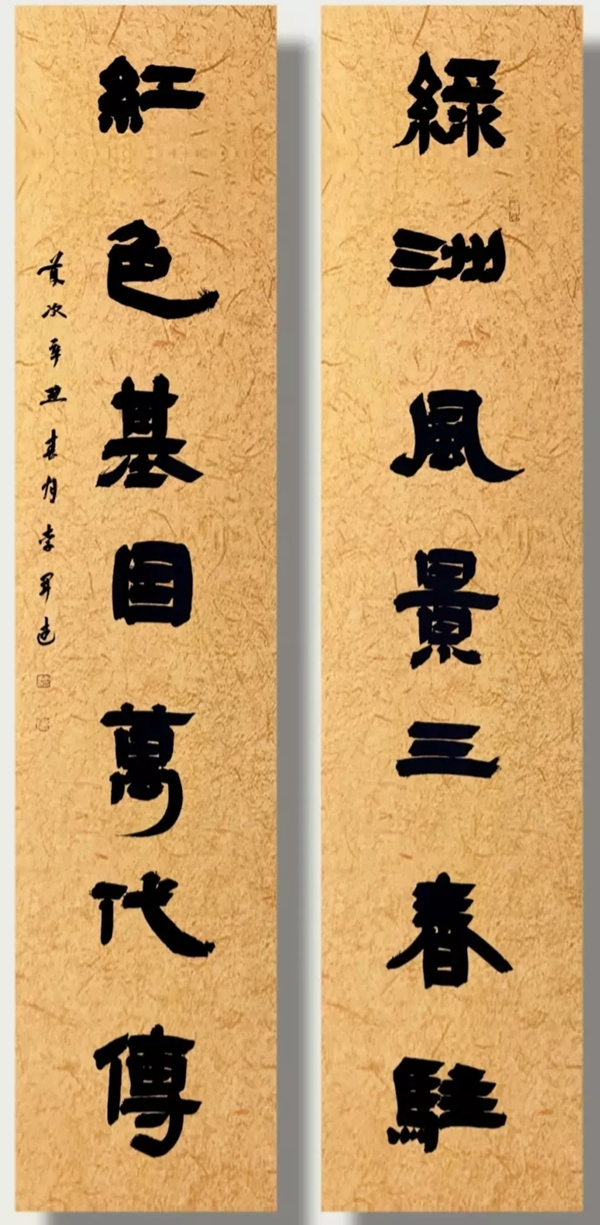 綠洲風景三春駐
紅色基因萬代傳
歲次辛丑春月李